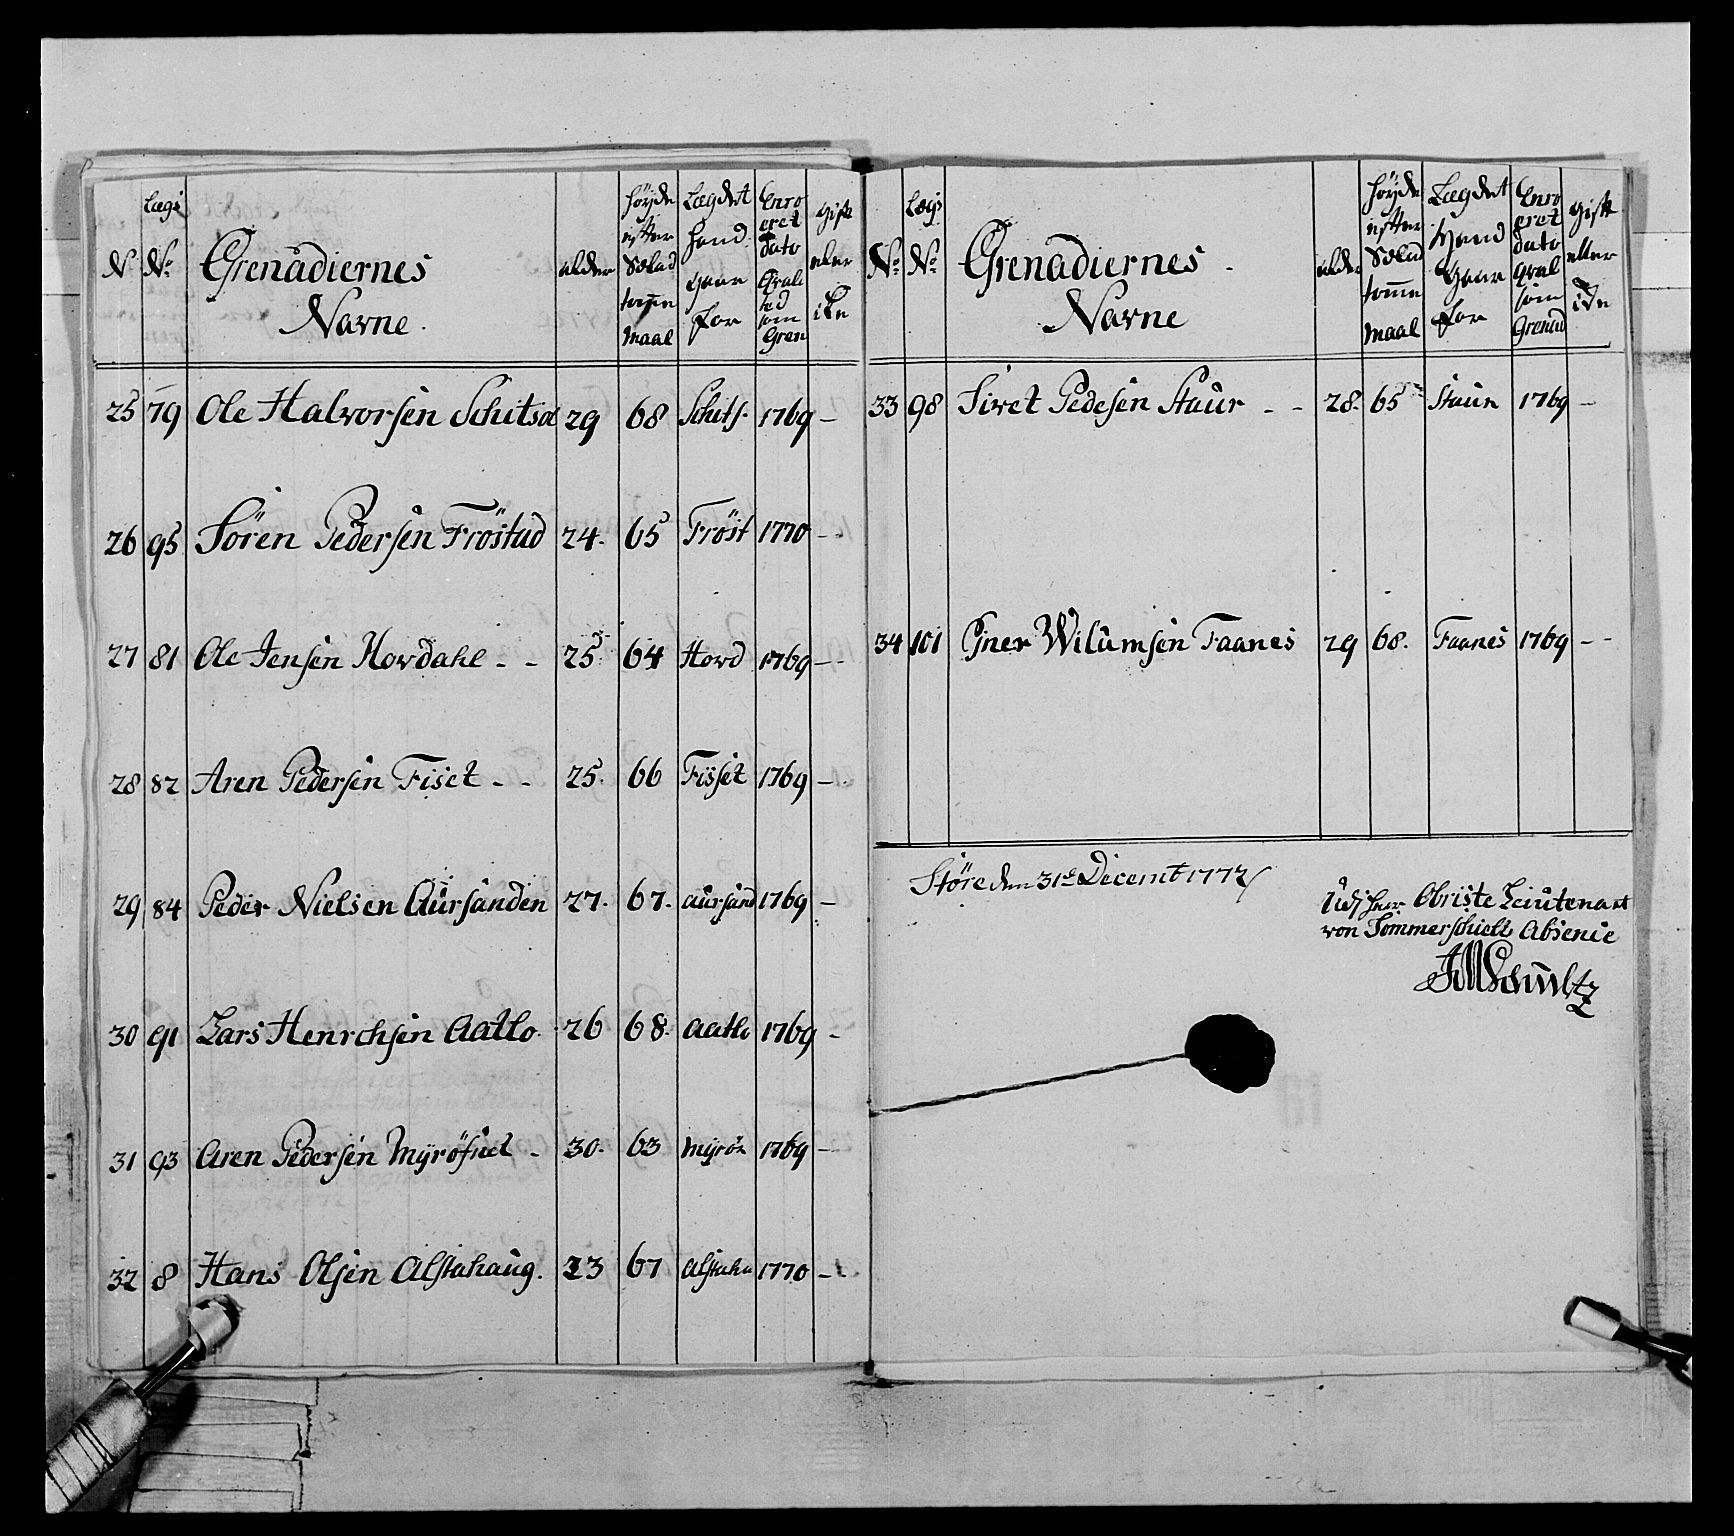 N Lægs No Grenadiernes Navne. alder høyde efter Solad tomme maal Lægdet hand gaar for Enro eret dato Qvali ed som Gren gift eller ike
25 79 Ole Halvorsen Schitsa 29 68 Schits. 1769 –
26 95 Sören Pedersen Fröstad 24. 65 Fröst 1770 –
27 81 Ole Jensen Hovdahl – – 25 64 Hovd 1769 – –
28 82 Aren Pedersen Fiset – – 25. 66 Fisset 1769 –
29 84 Peder Nielsen Aursanden 27. 67. aursand 1769 –
30 91 Lars Henrchsen Aatlo. 26 68. aatlo 1769 –
31 93 Aren Pedersen Myrösuet – 30. 63 Myrös 1769 –
32 8 Hans Olsen Alstahaug. 23 67 Alstaha 1770 –
No Lægs No Grenadiernes Navne alder høyde efter Solad tomme maal Lægdet Hand gaar for Enro eret dato Qval som Grenad gift eller ike
33 98 Sivet Pedesen Staur – – 28. 65 Staur 1769 –
34 101 Einer Wilumsen Faanes 29 68. Faanes 1769 – –
Störe den 31te Decemb 1772
Udj Herr Obriste Leiutenant
von Sommerschielt Absenie
JMSchultz